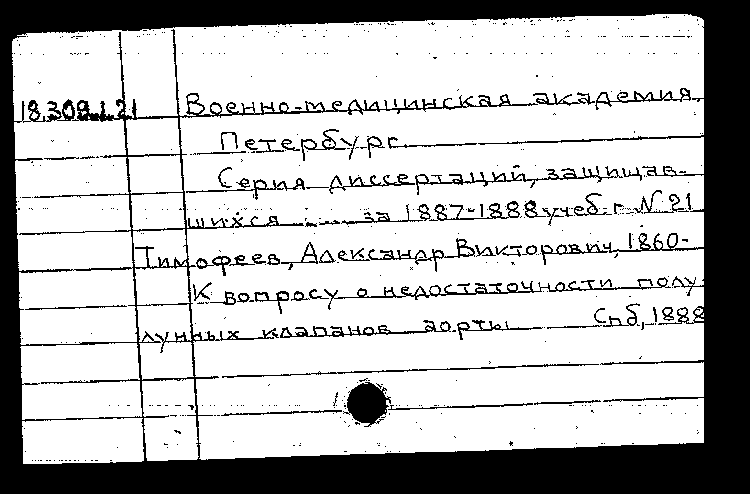 18.309.1.21 Военно-медицинская академия.
Петербург.
Серия диссертаций, защищав-
шихся ..... за 1887-1888 учеб. г. № 21
Тимофеев, Александр Викторович, 1860-
К вопросу о недостаточности полу-
лунных клапанов аорты Спб, 1888